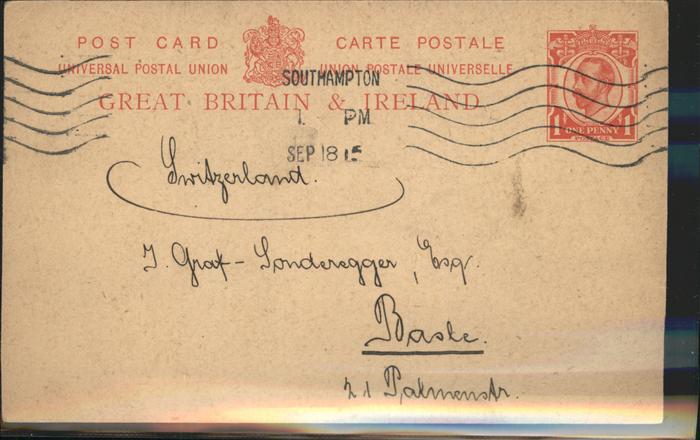 POST CARD CARTE POSTALE
UNIVERSAL POSTAL UNION UNION POSTALE UNIVERSELLE
GREAT BRITAIN & IRELAND
SOUTHAMPTON
1. PM
SEP 18 15
ONE PENNY
POSTAGE
Switzerland.
J. Graf-Sonderegger, Esq.
Basle.
21 Palmenstr.